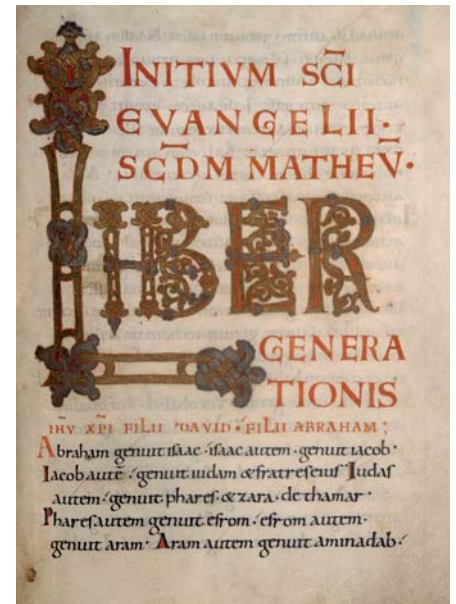 INITIVM SC̄I
EVANGELII·
SCD̄M MATHEV̄·
LIBER
GENERA
TIONIS
IHV̄ XP̄I FILII DAVID · FILII ABRAHAM :
Abraham genuit isaac · isaac autem · genuit iacob ·
Iacob autē · genuit iudam & fratres eius Iudas
autem · genuit phares · & zara · de thamar ·
Phares autem genuit esrom · esrom autem ·
genuit aram · Aram autem genuit aminadab ·